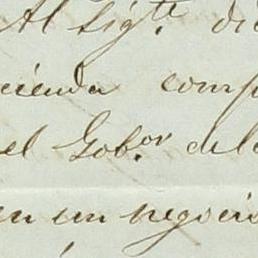 Al sigte. di
cienda comp
el Gobor. dela
en un negocio